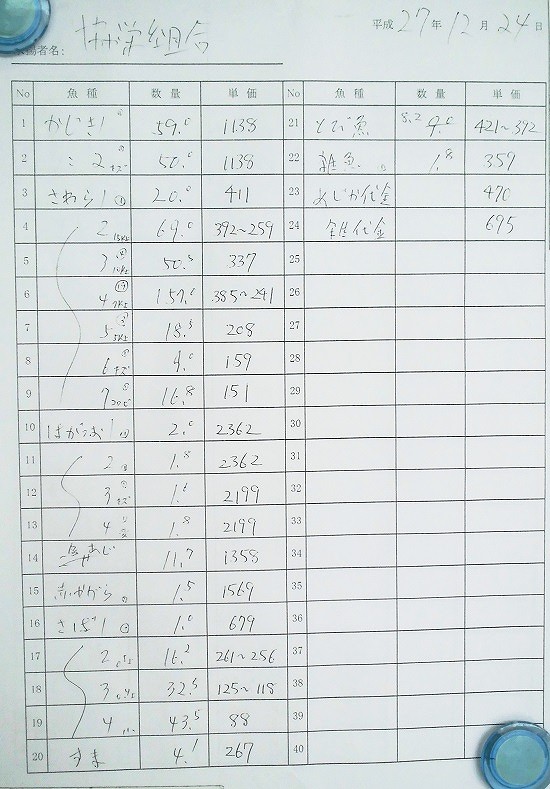 平成 27 年 12 月 24 日
者名: 組合
No 魚種 数量 単価
1 かじき1 59.0 1138
2 〃2 キズ 50.0 1138
3 さわら1 20.0 411
4 2 69.0 392~259
5 3 50.5 337
6 4 157.0 385~241
7 5 18.5 208
8 6 キズ 4.0 159
9 7 16.8 151
10 はがつお1 2.0 2362
11 2 1.8 2362
12 3 キズ 2199
13 4 1.8 2199
14 あじ 11.7 1358
15 1.5 1569
16 さば1 1.0 679
17 2 16.2 261~256
18 3 32.5 125~118
19 4 小 43.5 88
20 すま 4.1 267
No 魚種 数量 単価
21 とび魚 8.2 9.0 421~392
22 雑魚 1.8 359
23 めじか代金 470
24 代金 695
25
26
27
28
29
30
31
32
33
34
35
36
37
38
39
40